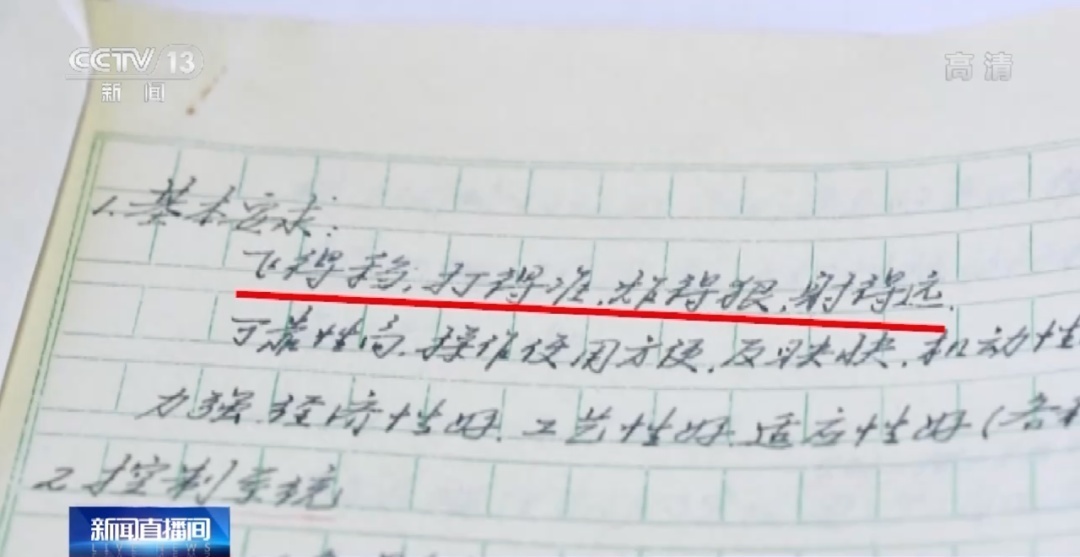 CCTV 13
新闻
高清
1.基本要求:
飞得稳,打得准,炸得狠,射得远.
可靠性高,操作使用方便,反映快,机动性
力强,经济性好,工艺性好,适应性好(各种
2.控制系统
新闻直播间
LIVE NEWS